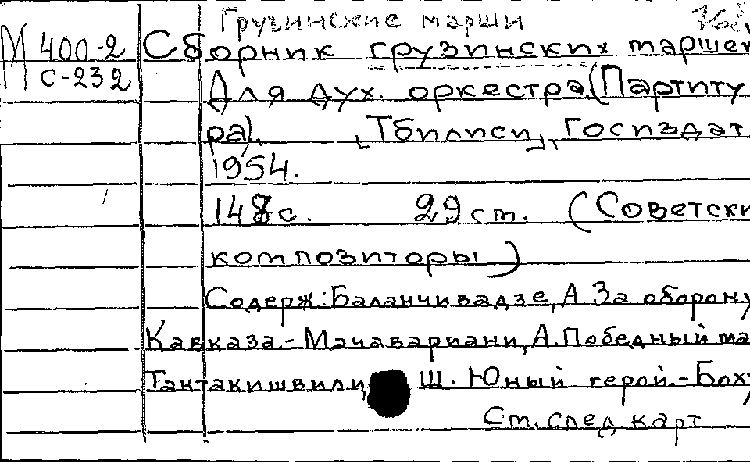 Грузинские марши
М 400-2 Сборник грузинских маршей
С-232 Для дух. оркестра (Партиту
ра). [Тбилиси], Госиздат
1954.
148 с. 29 ст. (Советски
композиторы)
Содерж: Баланчивадзе, А За оборону
Кавказа.- Мачавариани, А. Победный ма
Тактакишвили, Ш. Юный герой.- Бох
См. след карт